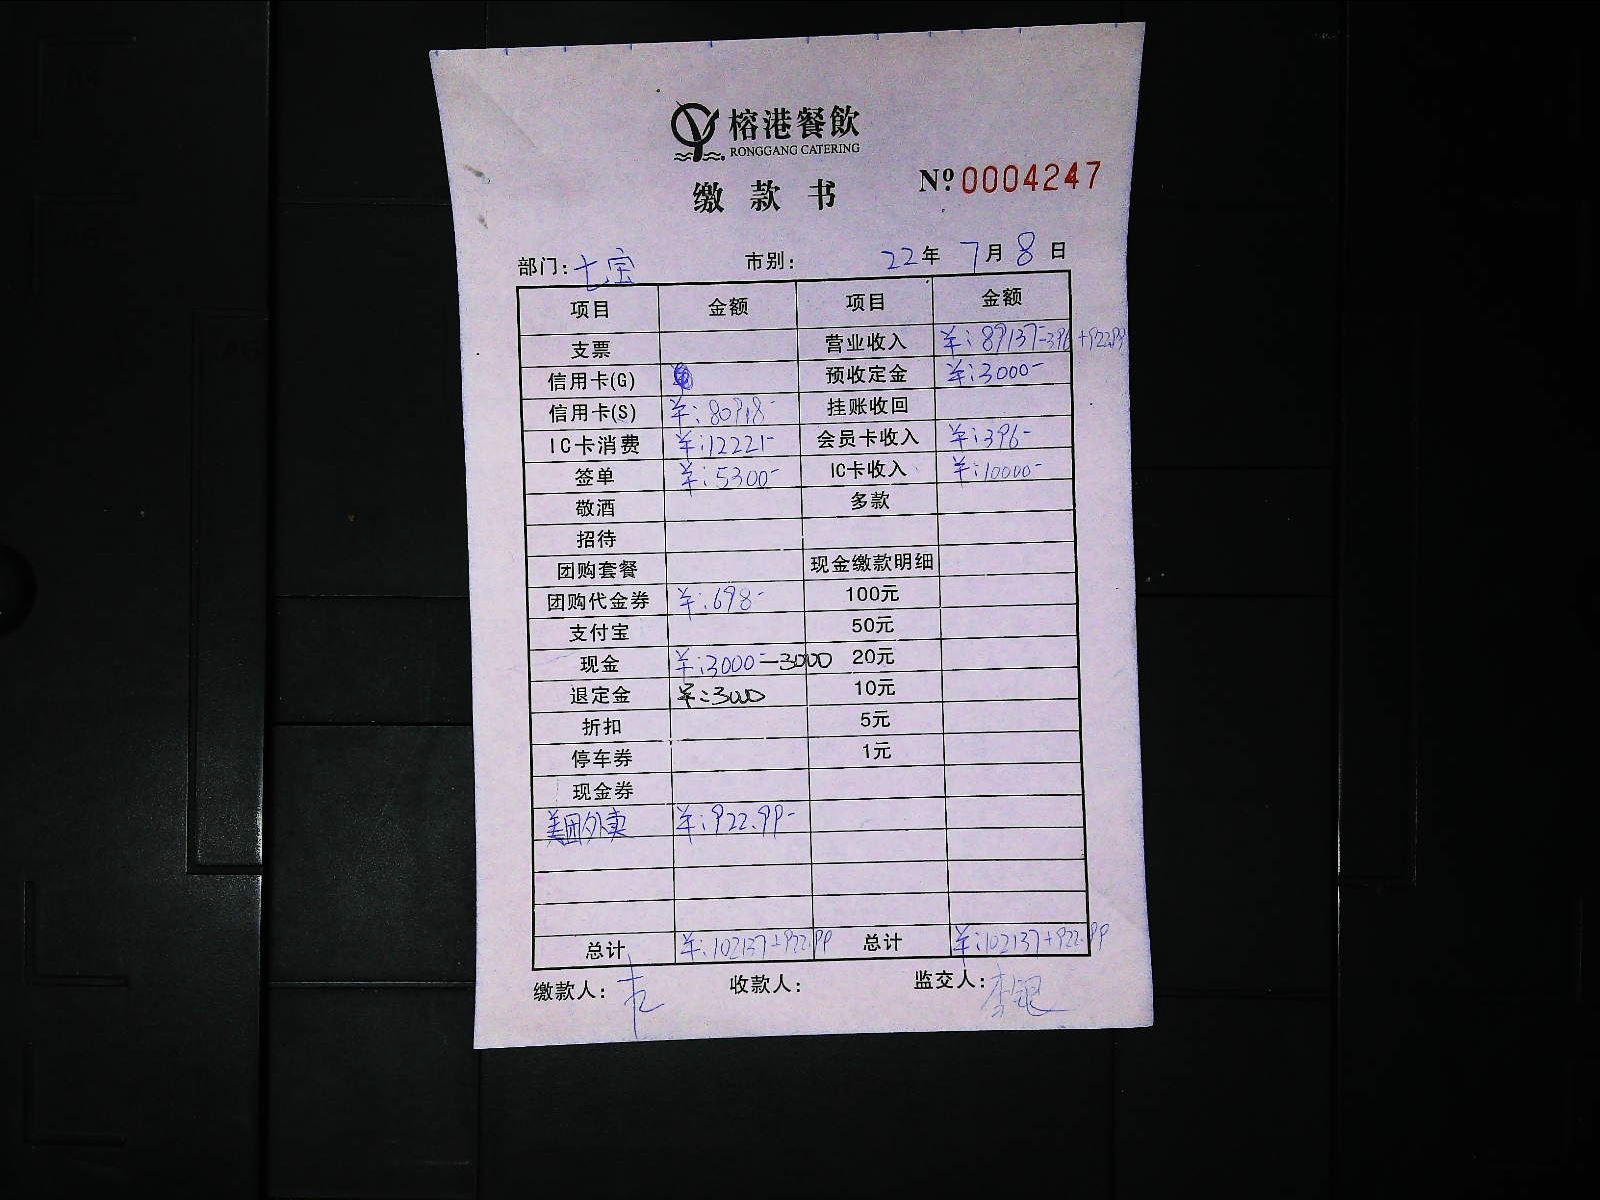 榕港餐飲
RONGGANG CATERING
缴款书 Nº 0004247
部门: 七宝 市别: 22年 7月 8日
项目 金额 项目 金额
支票 营业收入 ¥:89137-396+922.99
信用卡(G) 预收定金 ¥:3000-
信用卡(S) ¥:80918- 挂账收回
IC卡消费 ¥:12221- 会员卡收入 ¥:396-
签单 ¥:5300- IC卡收入 ¥:10000-
敬酒 多款
招待
团购套餐 现金缴款明细
团购代金券 ¥:698- 100元
支付宝 50元
现金 ¥:3000-—3000 20元
退定金 ¥:3000 10元
折扣 5元
停车券 1元
现金券
美团外卖 ¥:922.99-
总计 ¥:102137+922.99 总计 ¥:102137+922.99
缴款人: 收款人: 监交人: 李银